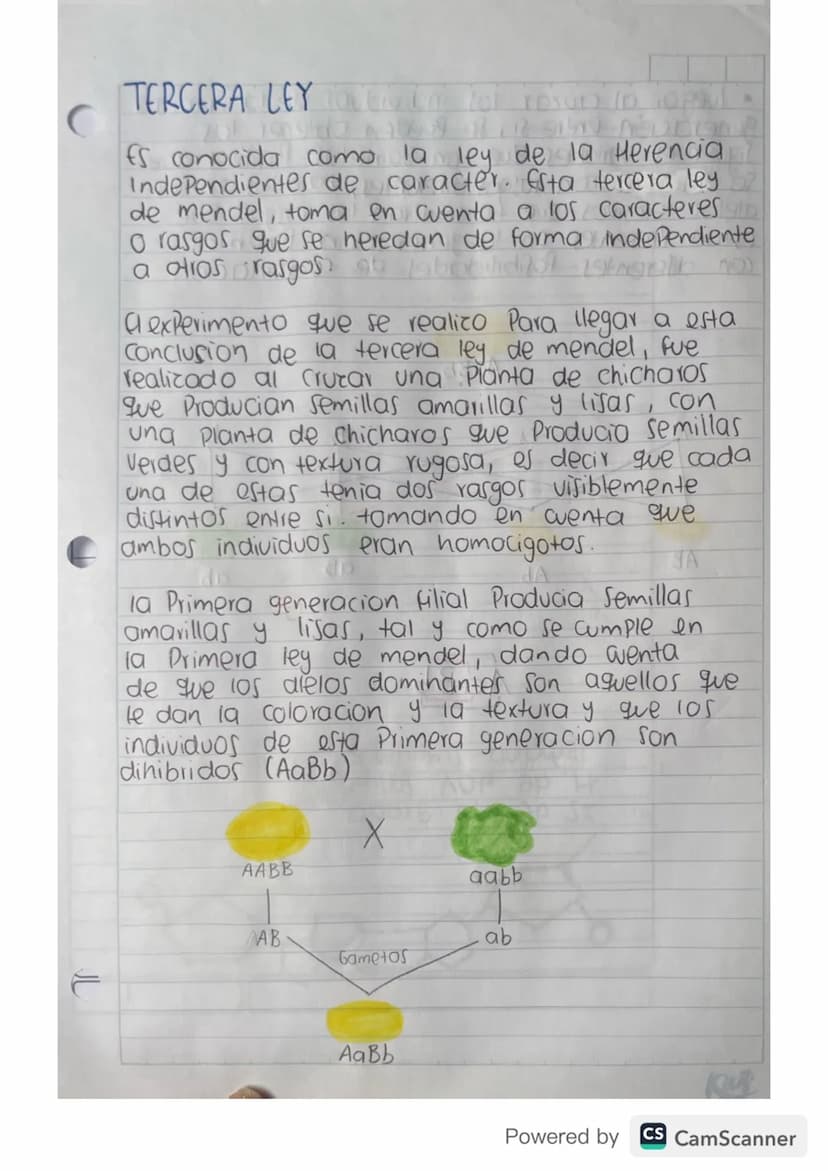 TERCERA LEY
Es conocida como la ley de la Herencia
Independientes de caracter. Esta tercera ley
de mendel, toma en cuenta a los caracteres
o rasgos que se heredan de forma independiente
a otros rasgos.
El experimento que se realizo Para llegar a esta
conclusion de la tercera ley de mendel, fue
realizado al cruzar una Planta de chicharos
que Producian semillas amarillas y lisas, con
una planta de chicharos que Producia semillas
Verdes y con textura rugosa, es decir que cada
una de estas tenia dos rasgos visiblemente
distintos entre si. tomando en cuenta que
ambos individuos eran homocigotos.
la Primera generacion filial Producia semillas
amarillas y lisas, tal y como se cumple en
la Primera ley de mendel, dando cuenta
de que los alelos dominantes son aquellos que
le dan la coloracion y la textura y que los
individuos de esta Primera generacion son
dihibridos (AaBb)
X
AABB aabb
AB ab
Gametos
AaBb
Powered by CS CamScanner